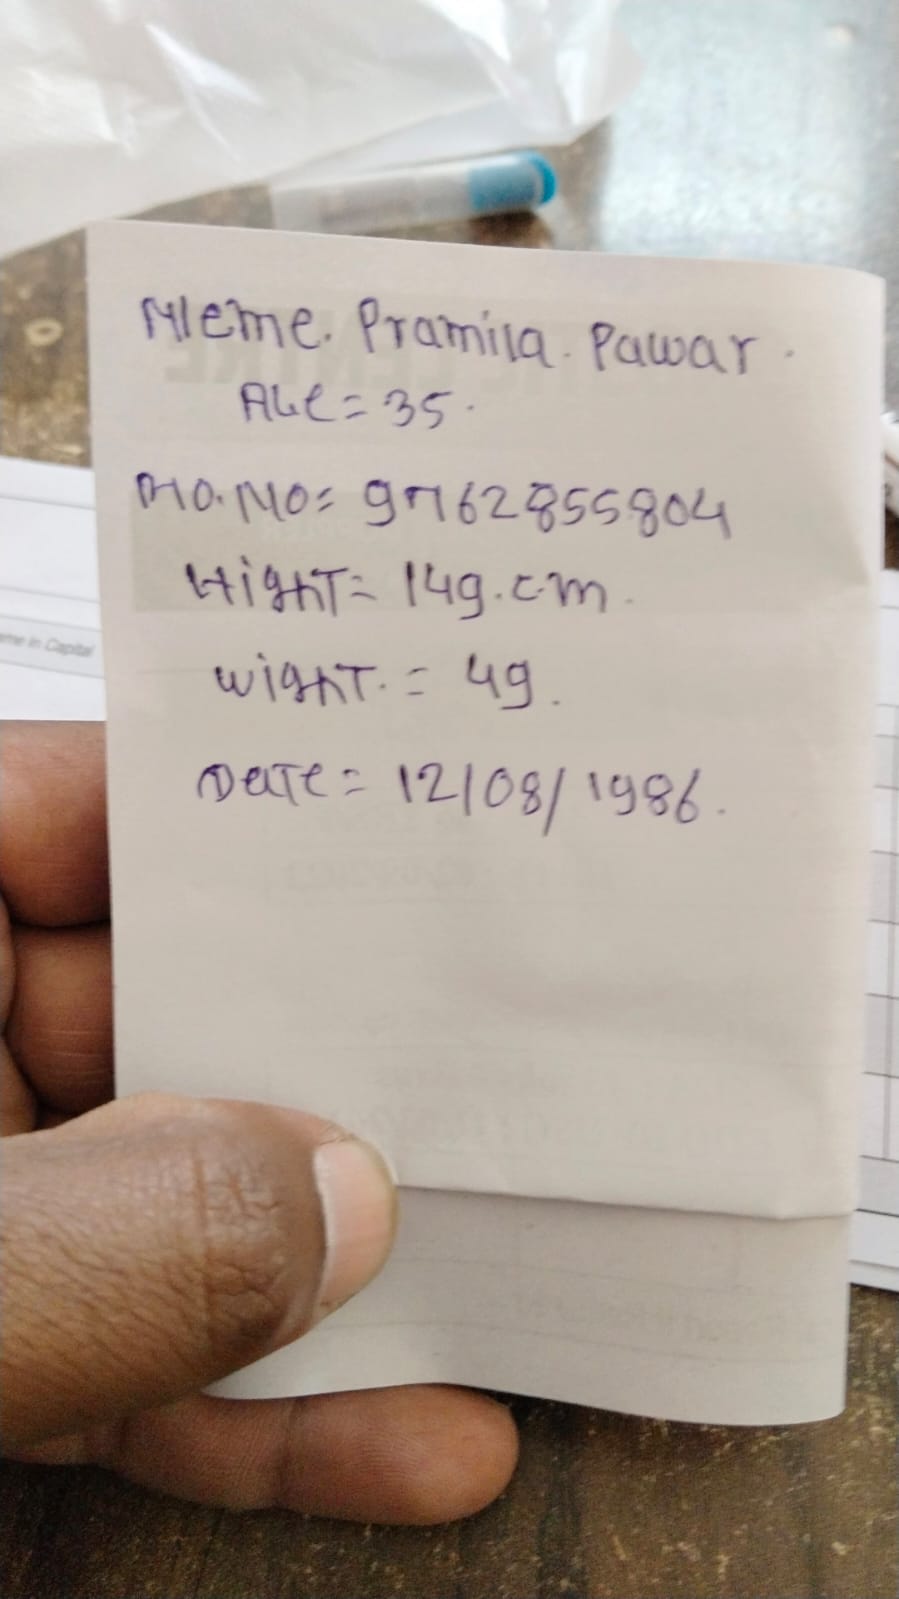 Neme. Pramila. Pawar.
AGe = 35.
Mo. No = 9762855804
HighT = 149.cm.
wighT. = 49.
DaTe = 12/08/1986.
eme in Capital